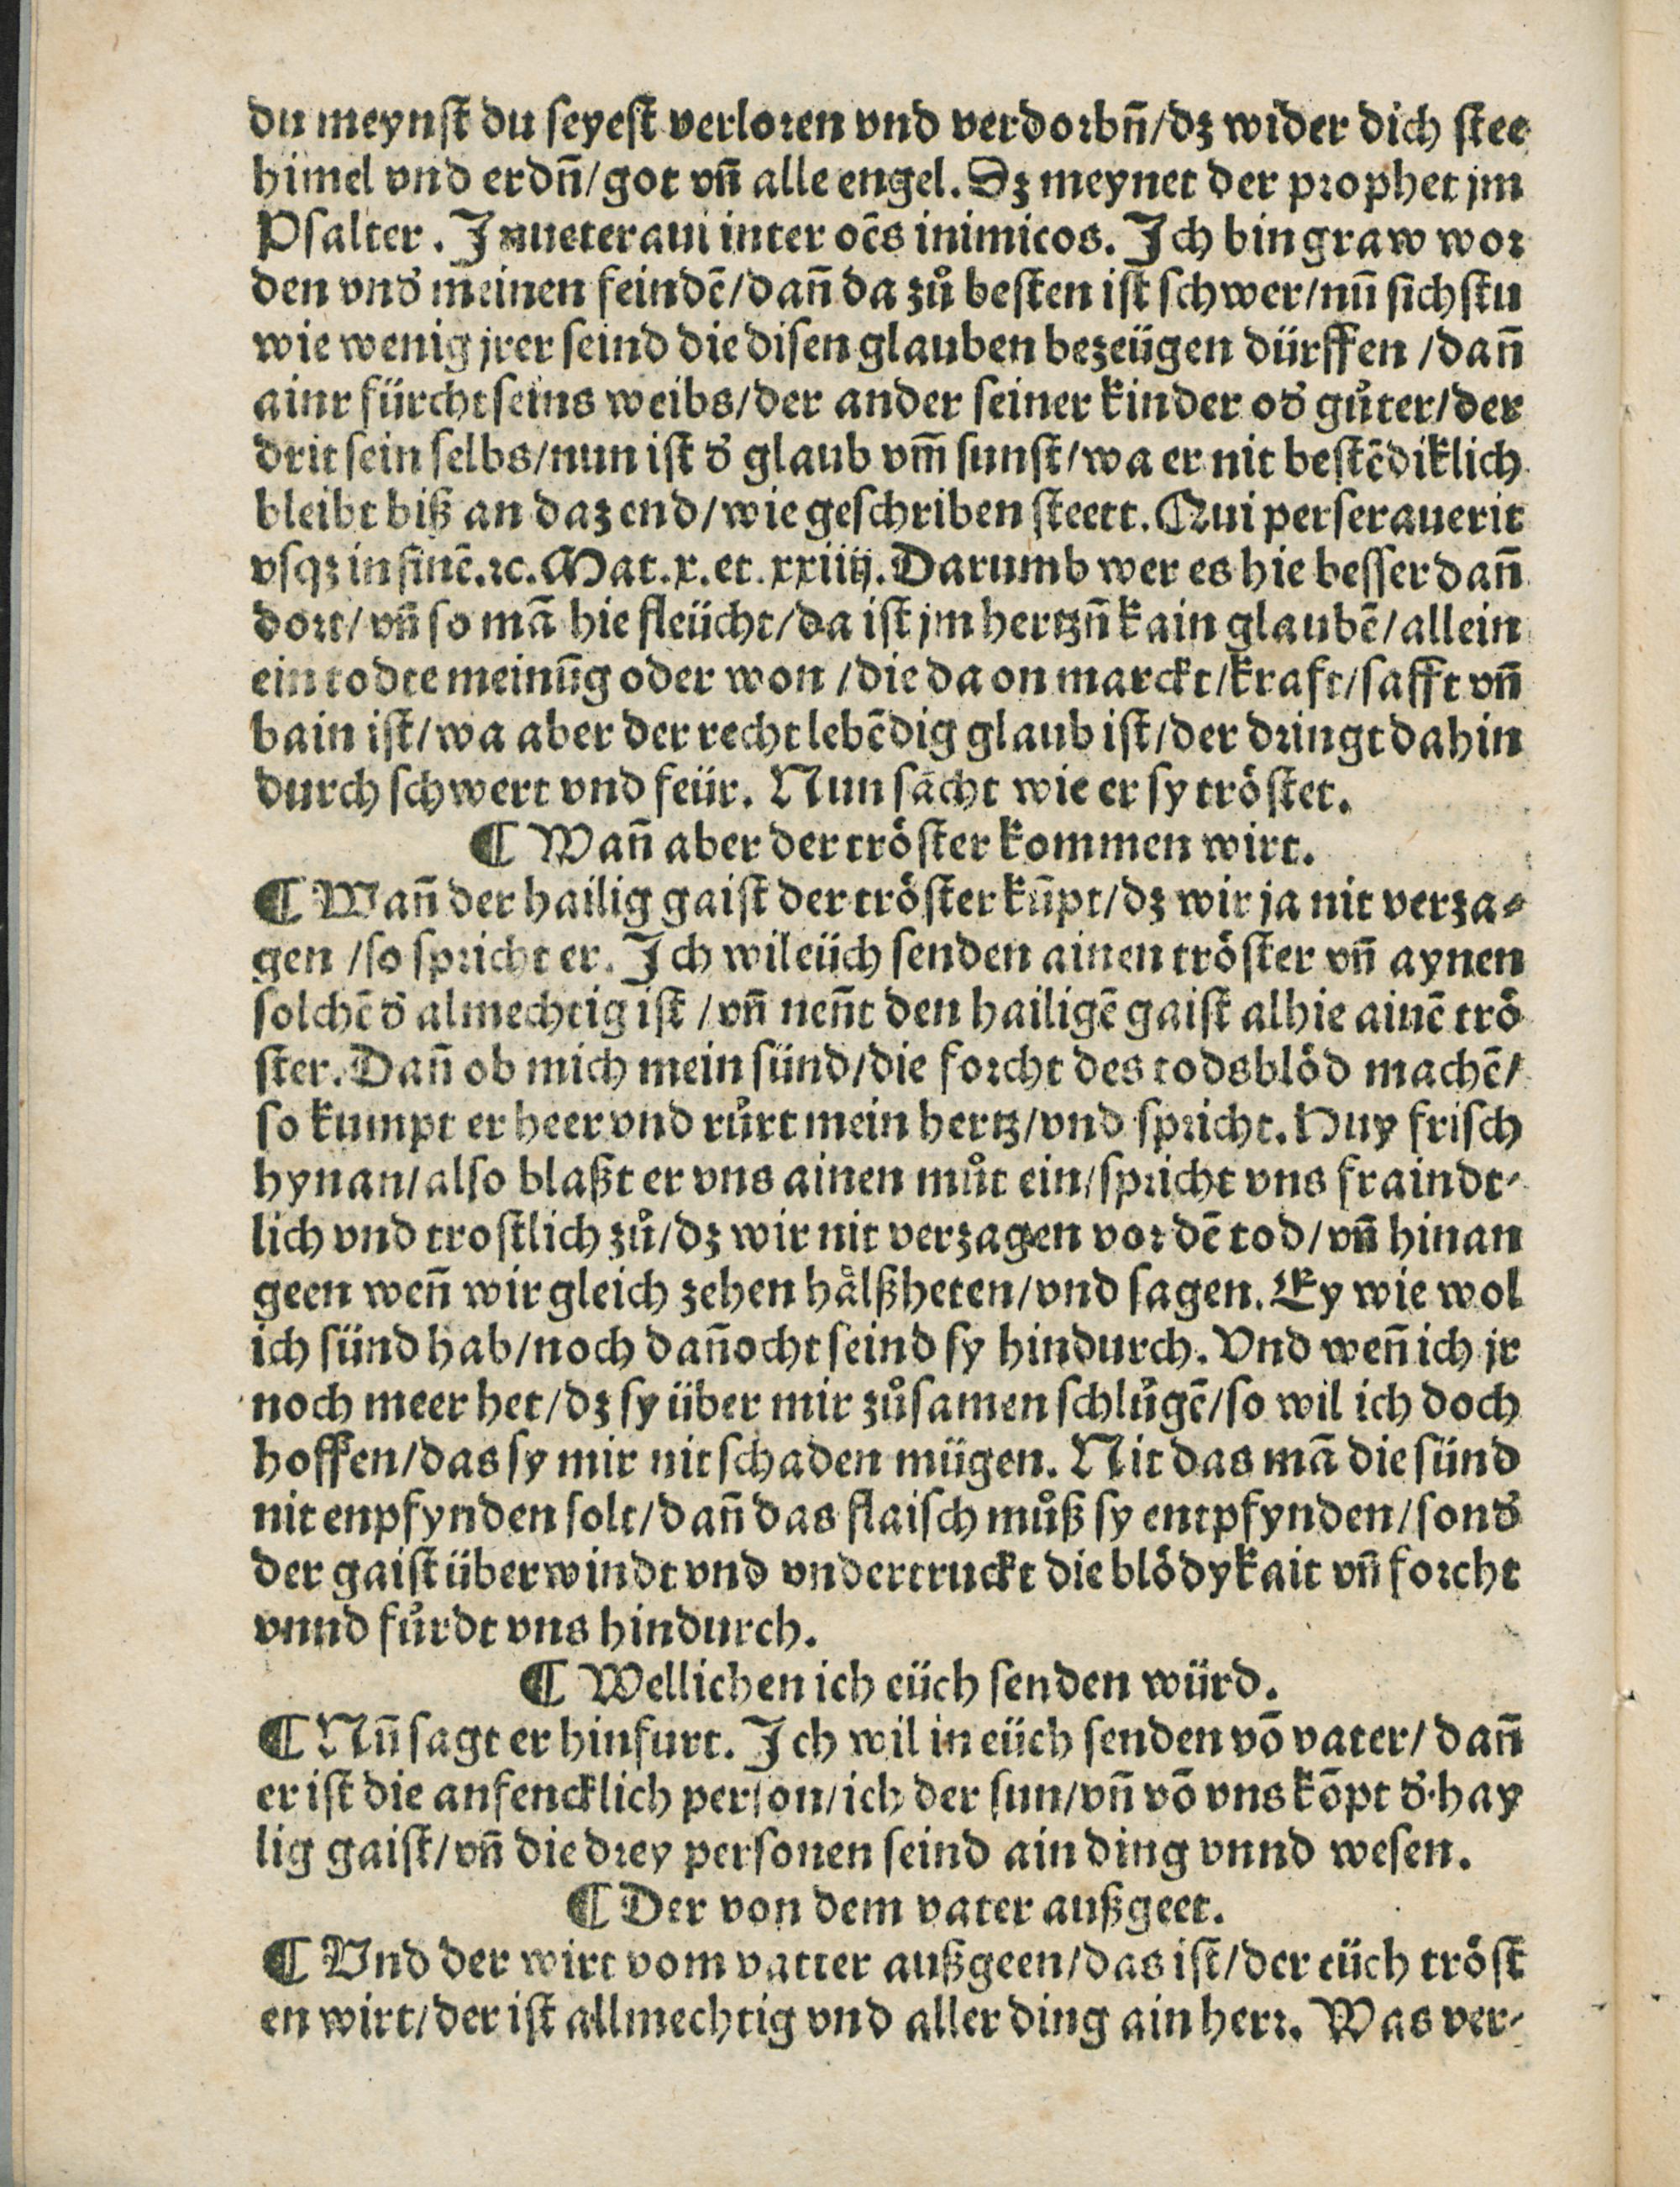 du meynſt du ſeyeſt verloꝛen vnd verdoꝛbn̄/dz wider dich ſtee
himel vnd erdn̄/got vn̄ alle engel. Dz meynet der pꝛophet jm
Pſalter. Inueteraui inter oēs inimicos. Ich bin graw woꝛ
den vnd᷑ meinen feindē/dan̄ da zů beſten iſt ſchwer/nun̄ ſichſtu
wie wenig jrer ſeind die diſen glauben bezeügen dürffen /dan̄
ainr fürcht ſeins weibs/der ander ſeiner kinder od᷑ gůter/der
drit ſein ſelbs/nun iſt d᷑ glaub vm̄ ſunſt/wa er nit beſtēdiklich
bleibt biß an daz end/wie geſchriben ſteett. Qui perſerauerit
vſqꝫ in finē.ꝛc. Mat.x.et.xxiiij. Darumb wer es hie beſſer dan̄
doꝛt/vn̄ ſo mā hie fleücht/da iſt jm hertzn̄ kain glaubē/allein
ein todte meinūg oder won /die da on marckt/kraft/ſafft vn̄
bain iſt/wa aber der recht lebēdig glaub iſt/der dꝛingt dahin
durch ſchwert vnd feür. Nun ſächt wie er ſy tröſtet.
¶ Wan̄ aber der tröſter kommen wirt.
¶ Wan̄ der hailig gaiſt der tröſter kūpt/dz wir ja nit verza⸗
gen /ſo ſpꝛicht er. Ich wil eüch ſenden ainen tröſter vn̄ aynen
ſolchē d᷑ almechtig iſt /vn̄ nen̄t den hailigē gaiſt alhie ainē trö
ſter. Dan̄ ob mich mein ſünd/die foꝛcht des tods blöd machē/
ſo kumpt er heer vnd růrt mein hertz/vnd ſpꝛicht. Huy friſch
hynan/alſo blaßt er vns ainen můt ein/ſpꝛicht vns fraindt⸗
lich vnd troſtlich zů/dz wir nit verzagen voꝛ dē tod/vn̄ hinan
geen wen̄ wir gleich zehen hälß heten/vnd ſagen. Ey wie wol
ich ſünd hab/noch dan̄ocht ſeind ſy hindurch. Vnd wen̄ ich jr
noch meer het/dz ſy über mir zůſamen ſchlůgē/ſo wil ich doch
hoffen/das ſy mir nit ſchaden mügen. Nit das mā die ſünd
nit enpfynden ſolt/dan̄ das flaiſch můß ſy entpfynden/ſond᷑
der gaiſt überwindt vnd vndertruckt die blödykait vn̄ foꝛcht
vnnd fůrdt vns hindurch.
¶ Wellichen ich eüch ſenden würd.
¶ Nun̄ ſagt er hinfurt. Ich wil in eüch ſenden vō vater/dan̄
er iſt die anfencklich perſon/ich der ſun/vn̄ vō vns kōpt d᷑ hay
lig gaiſt/vn̄ die dꝛey perſonen ſeind ain ding vnnd weſen.
¶ Der von dem vater außgeet.
¶ Vnd der wirt vom vatter außgeen/das iſt/der eüch tröſt
en wirt/der iſt allmechtig vnd aller ding ain herꝛ. Was ver⸗